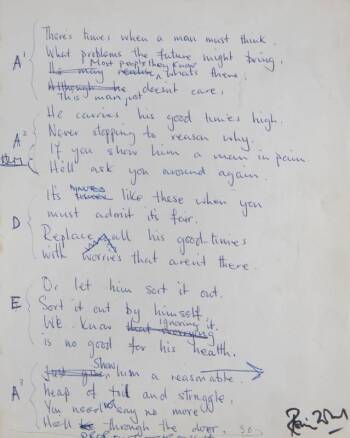 There's times when a man must think.
What problems the future might bring,
Most people they know
A1 He may realise, what's there,
Although he doesn't care,
This man just
He carries his good times high.
A2 Never stopping to reason why.
If you show him a man in pain.
He'll ask you around again.
It's MINUTES like these when you
D must admit it's fair.
Replace all his good times
with worries that aren't there.
Or let him sort it out.
E Sort it out by himself.
ignoring
WE know that worrying it.
is no good for his health.
Show
him a reasonable
A3 heap of and struggle,
You need say no more
He'll through the door, so